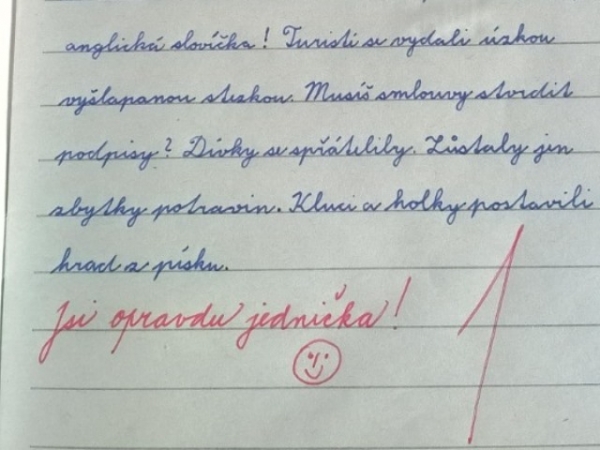 anglická slovíčka! Turisti se vydali úzkou
vyšlapanou stezkou. Musíš smlouvy stvrdit
podpisy? Dívky se spřátelily. Zůstaly jen
zbytky potravin. Kluci a holky postavili
hrad z písku.
Jsi opravdu jednička!
1